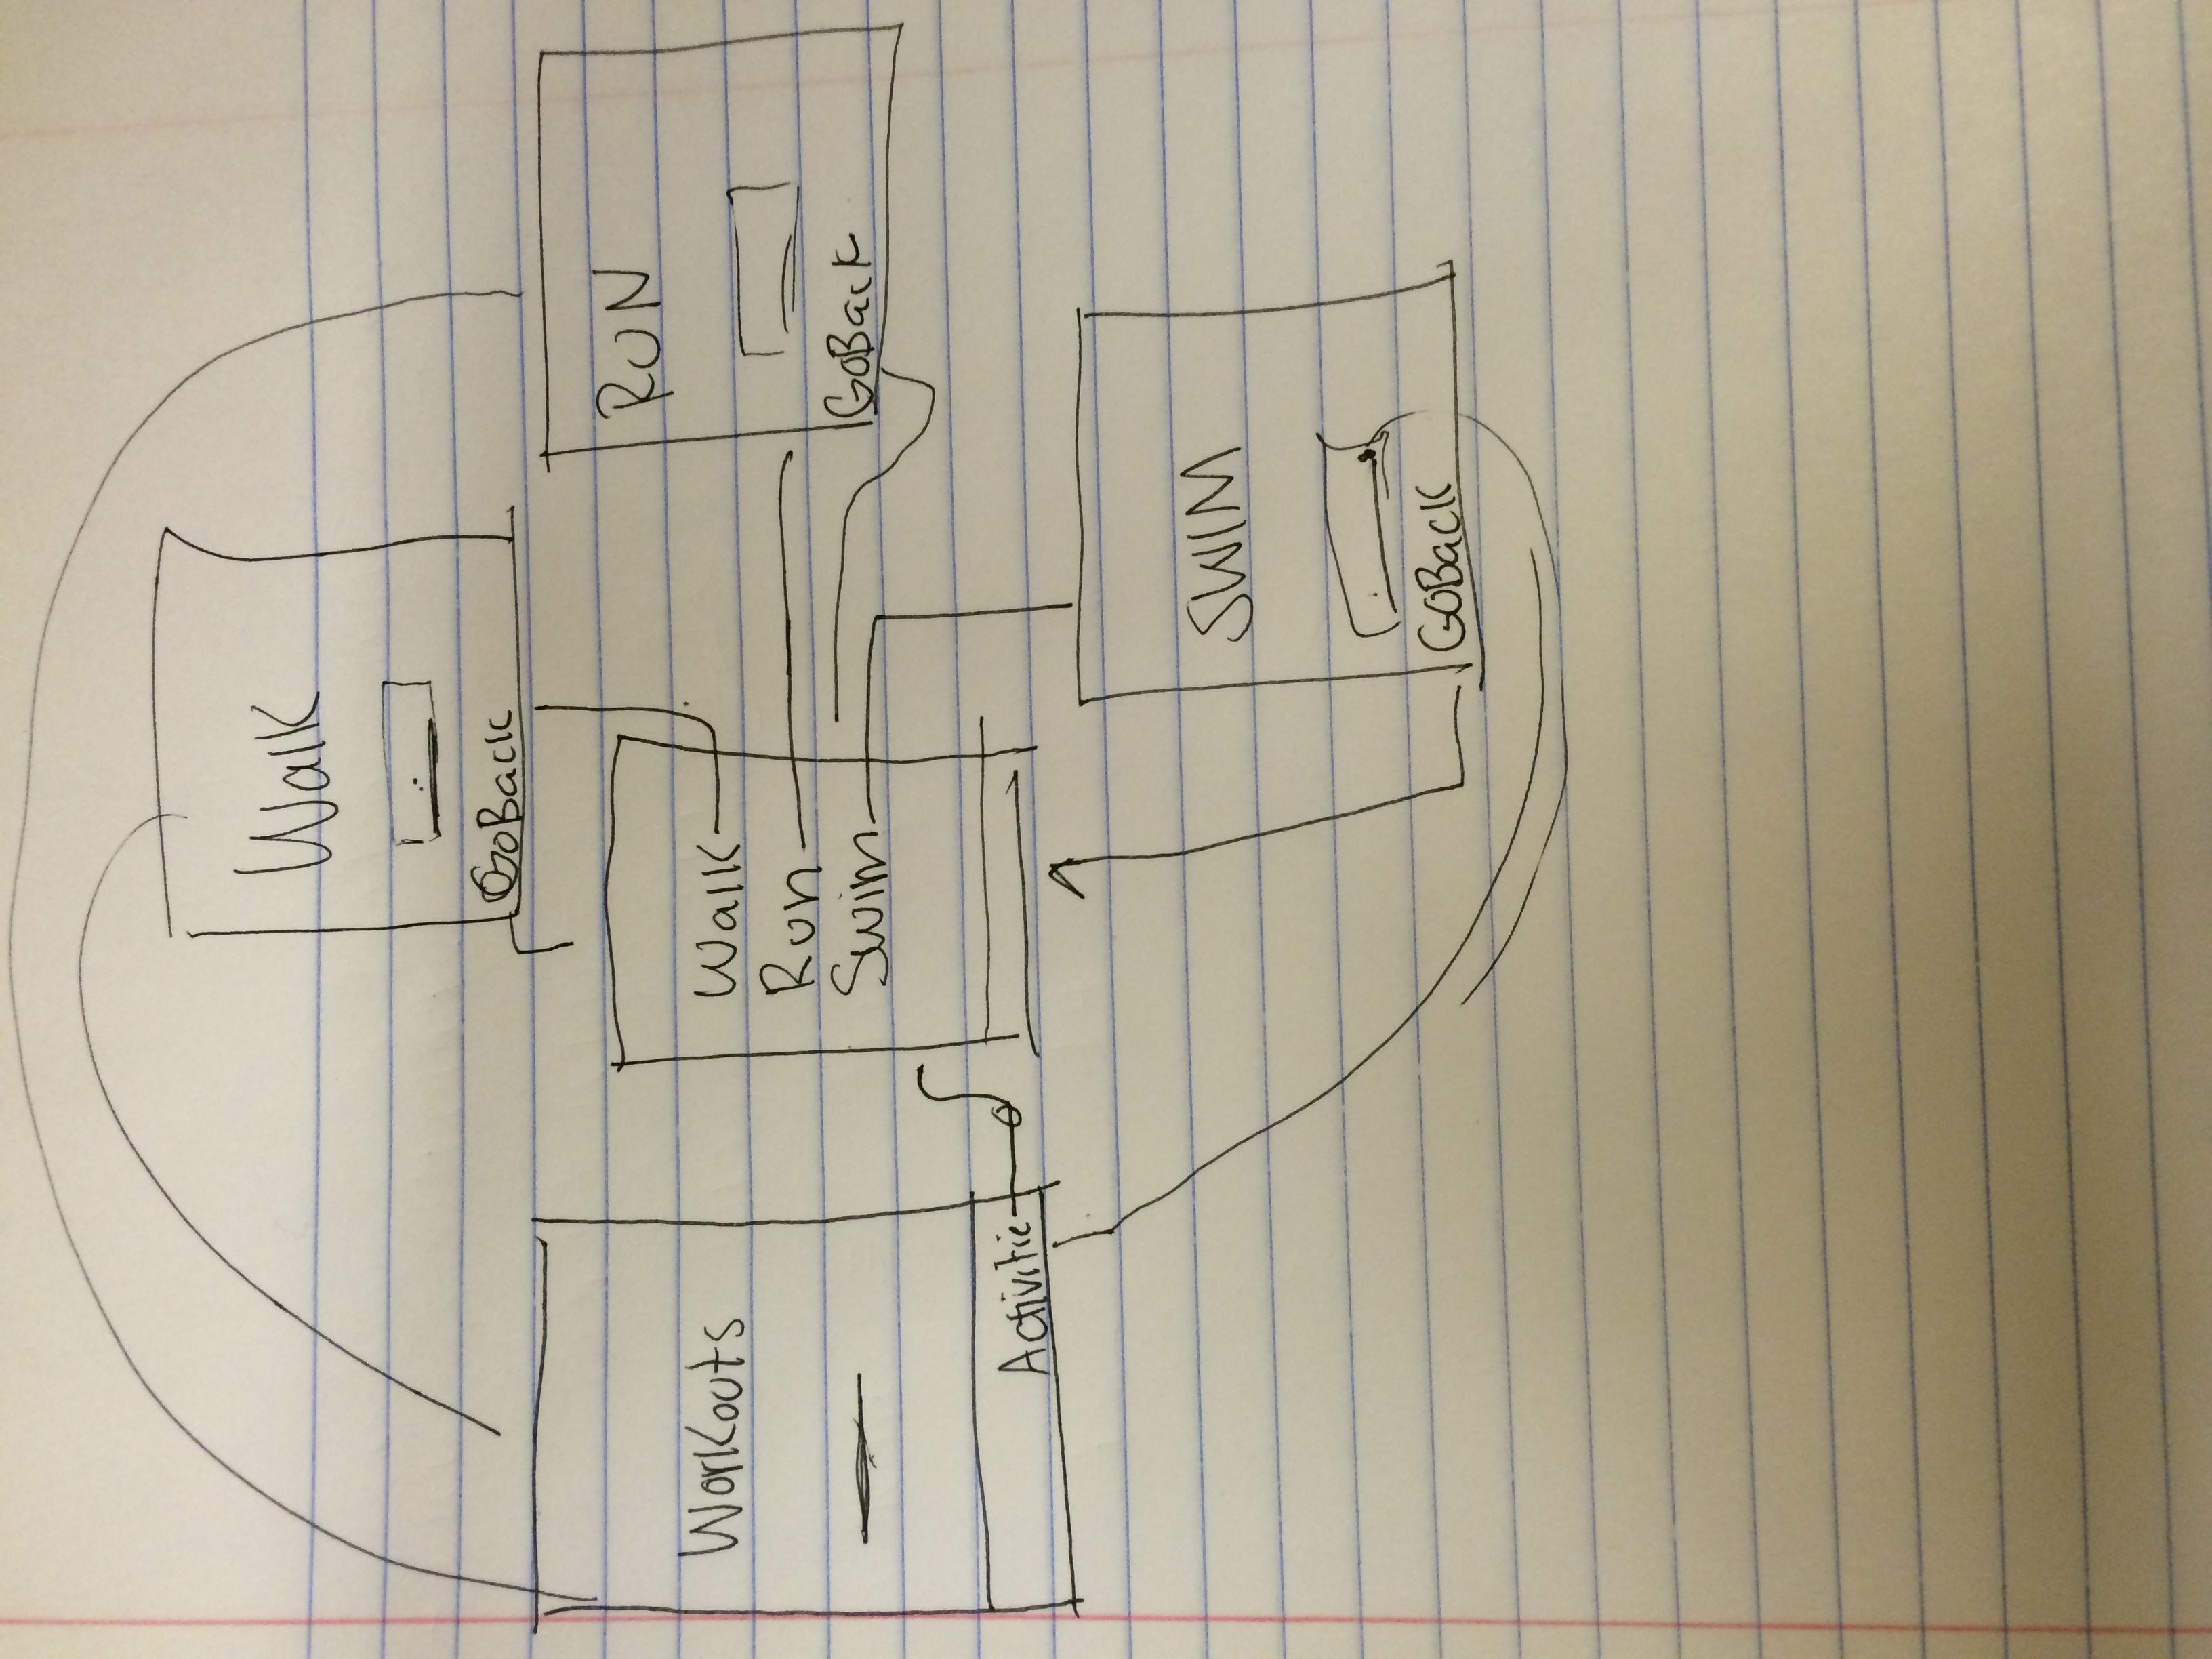 Walk
GoBack
Workouts
Activitie
Walk
Run
Swim
RUN
GoBack
SWIM
GoBack